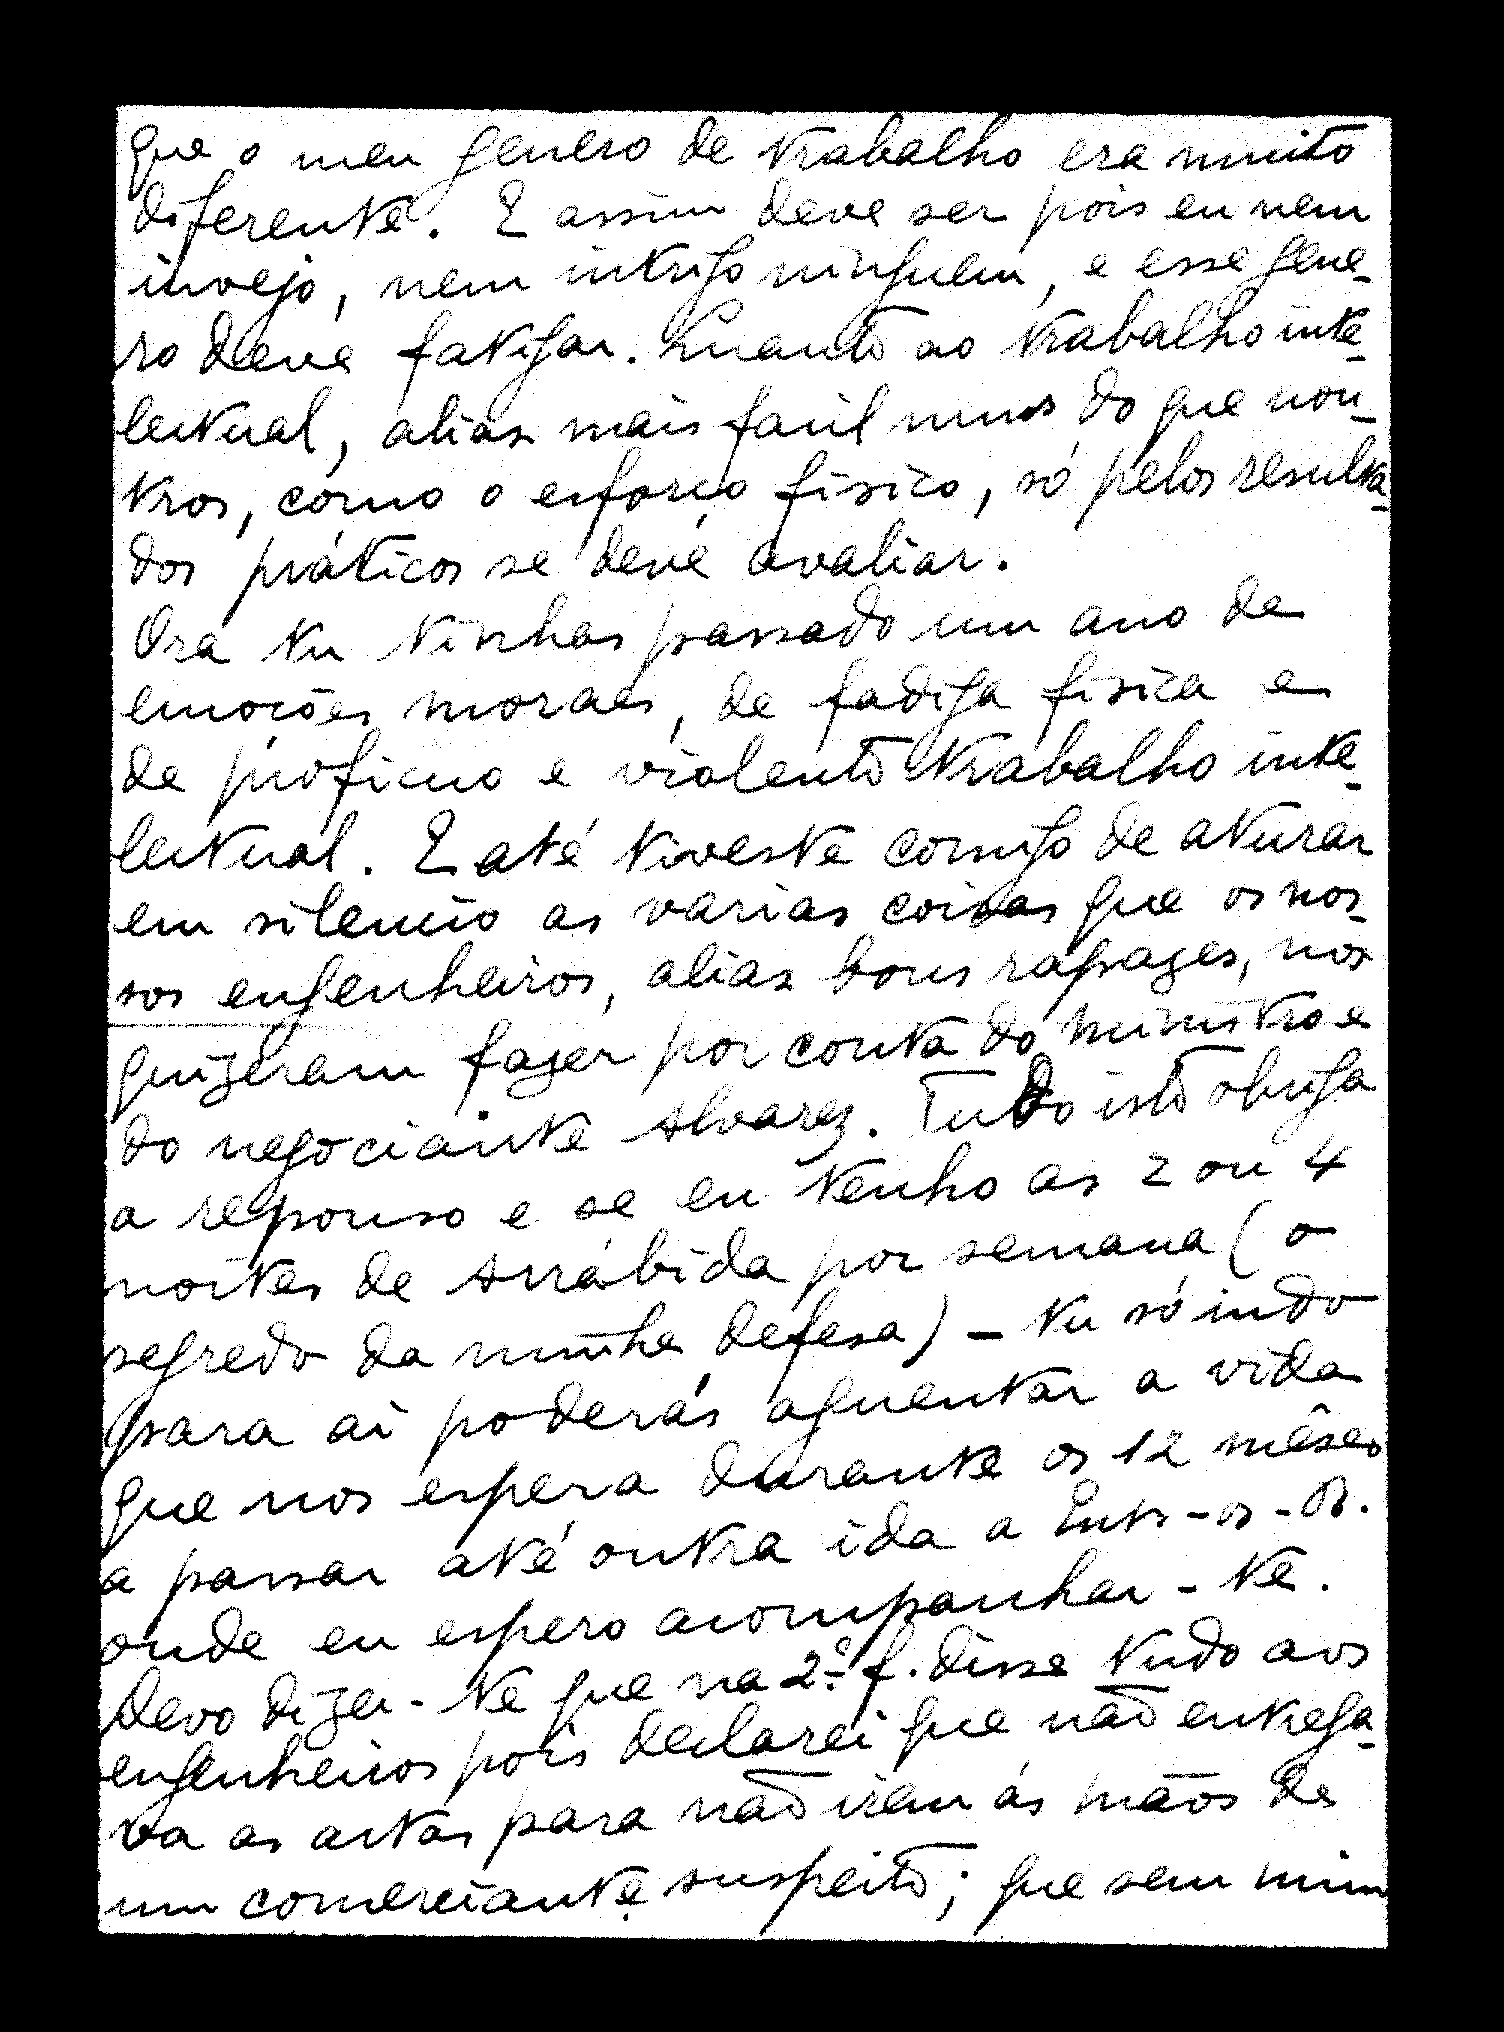 que o meu genero de trabalho era muito
diferente. E assim deve ser pois eu nem
invejo, nem intrigo ninguem, e esse gene-
ro deve fatigar. Quanto ao trabalho inte-
lectual, alias mais facil nuns do que nou-
tros, como o esforço fisico, só pelos resulta-
dos práticos se deve avaliar.
Ora tu tinhas passado um ano de
emoções moraes, de fadiga fisica e
de proficuo e violento trabalho inte-
lectual. E até tiveste comigo de aturar
em silencio as varias coisas que os nos-
sos engenheiros, alias bons rapazes, nos
quizeram fazer por conta do ministro e
do negociante Alvarez. Tudo isto obriga
a repouso e se eu tenho as 2 ou 4
noites de Arrábida por semana (o
segredo da minha defesa) - tu só indo
para ai poderás aguentar a vida
que nos espera durante os 12 mêses
a passar até outra ida a Entr-os-R.
onde eu espero acompanhar-te.
Devo dizer-te que na 2ª f. disse tudo aos
engenheiros pois declarei que não entrega-
va as actas para não irem ás mãos de
um comerciante suspeito; que sem mim